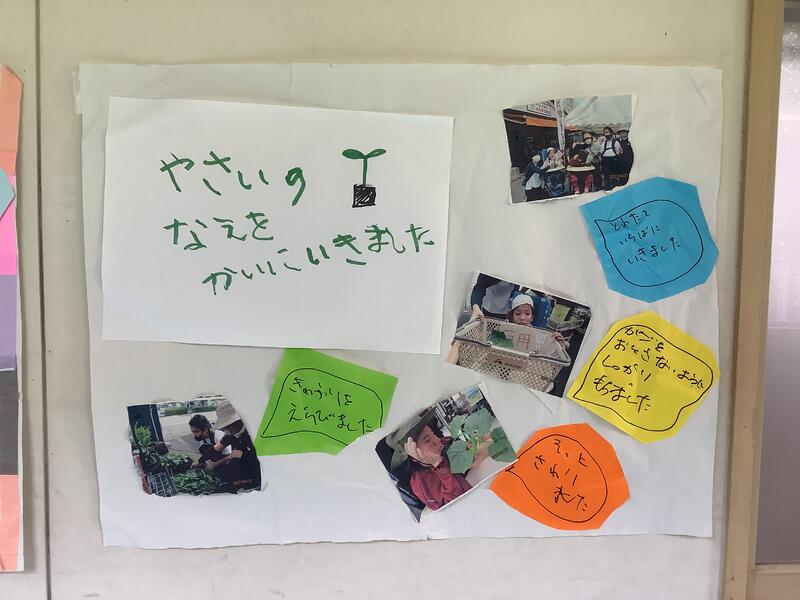 やさいの
なえを
かいにいきました
とれたて
いちばに
いきました
かごを
おとさないように
しっかり
もちました
きゅうりを
えらびました
そっと
さわり
ました
用